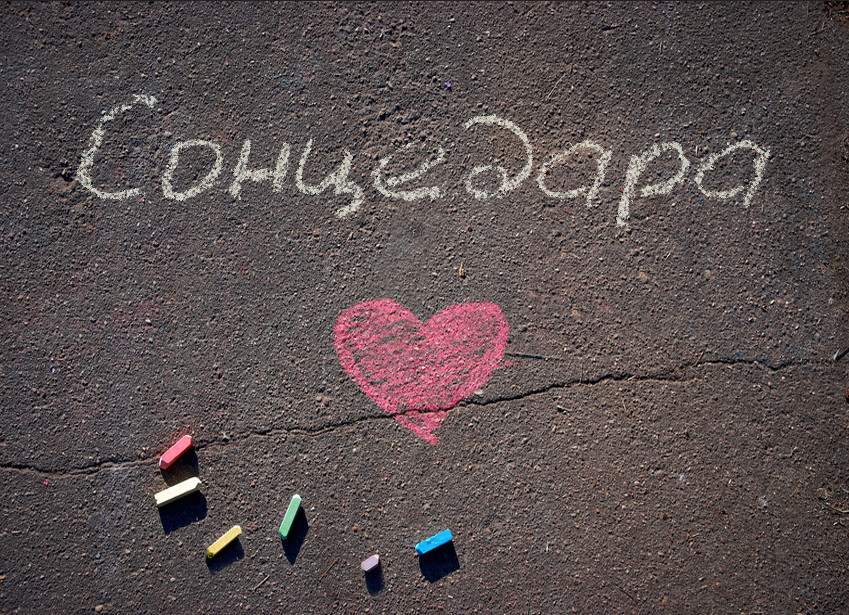 Сонцедара